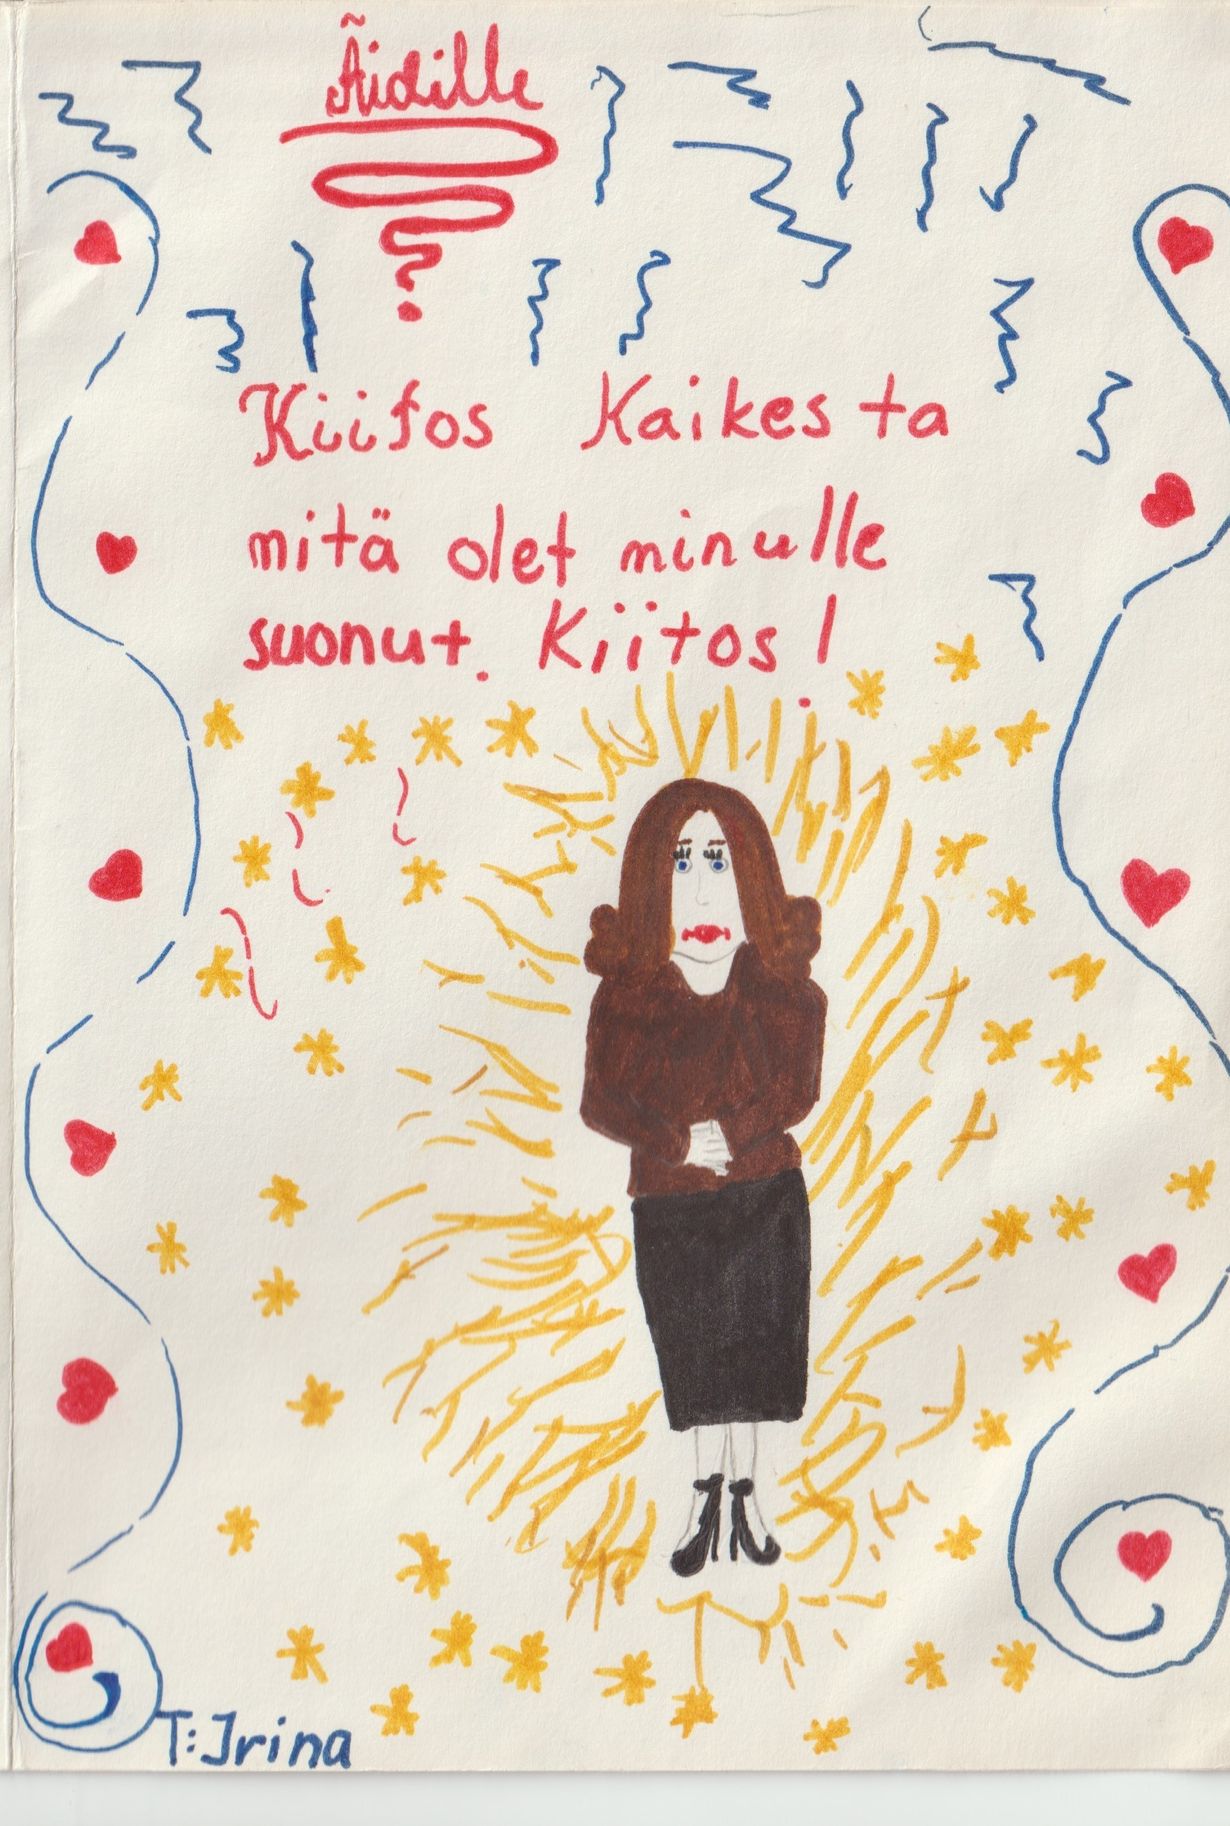 Äidille
Kiitos Kaikesta
mitä olet minulle
suonut. Kiitos!
T: Irina